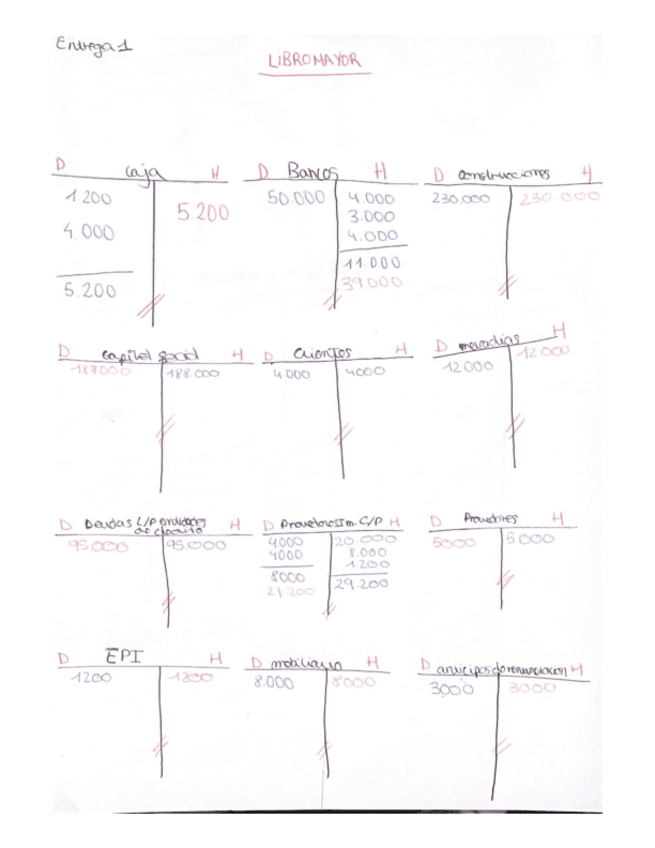 Entrega 1
LIBRO MAYOR
D caja H
1.200
5.200
4.000
5.200
D Bancos H
50.000 4.000
3.000
4.000
11.000
39.000
D construcciones H
230.000 230.000
D capital social H
188000 188.000
D clientes H
4000 4000
D H
12000 12000
D Deudas L/P entidades de H
95000 95.000
D Proveedores Im. C/P H
4000 20.000
4000 8.000
1.200
8000 29.200
21.200
D Proveedores H
5000 5000
D EPI H
1200 1200
D mobiliario H
8.000 8000
D anticipos de remuneracion H
3000 3000